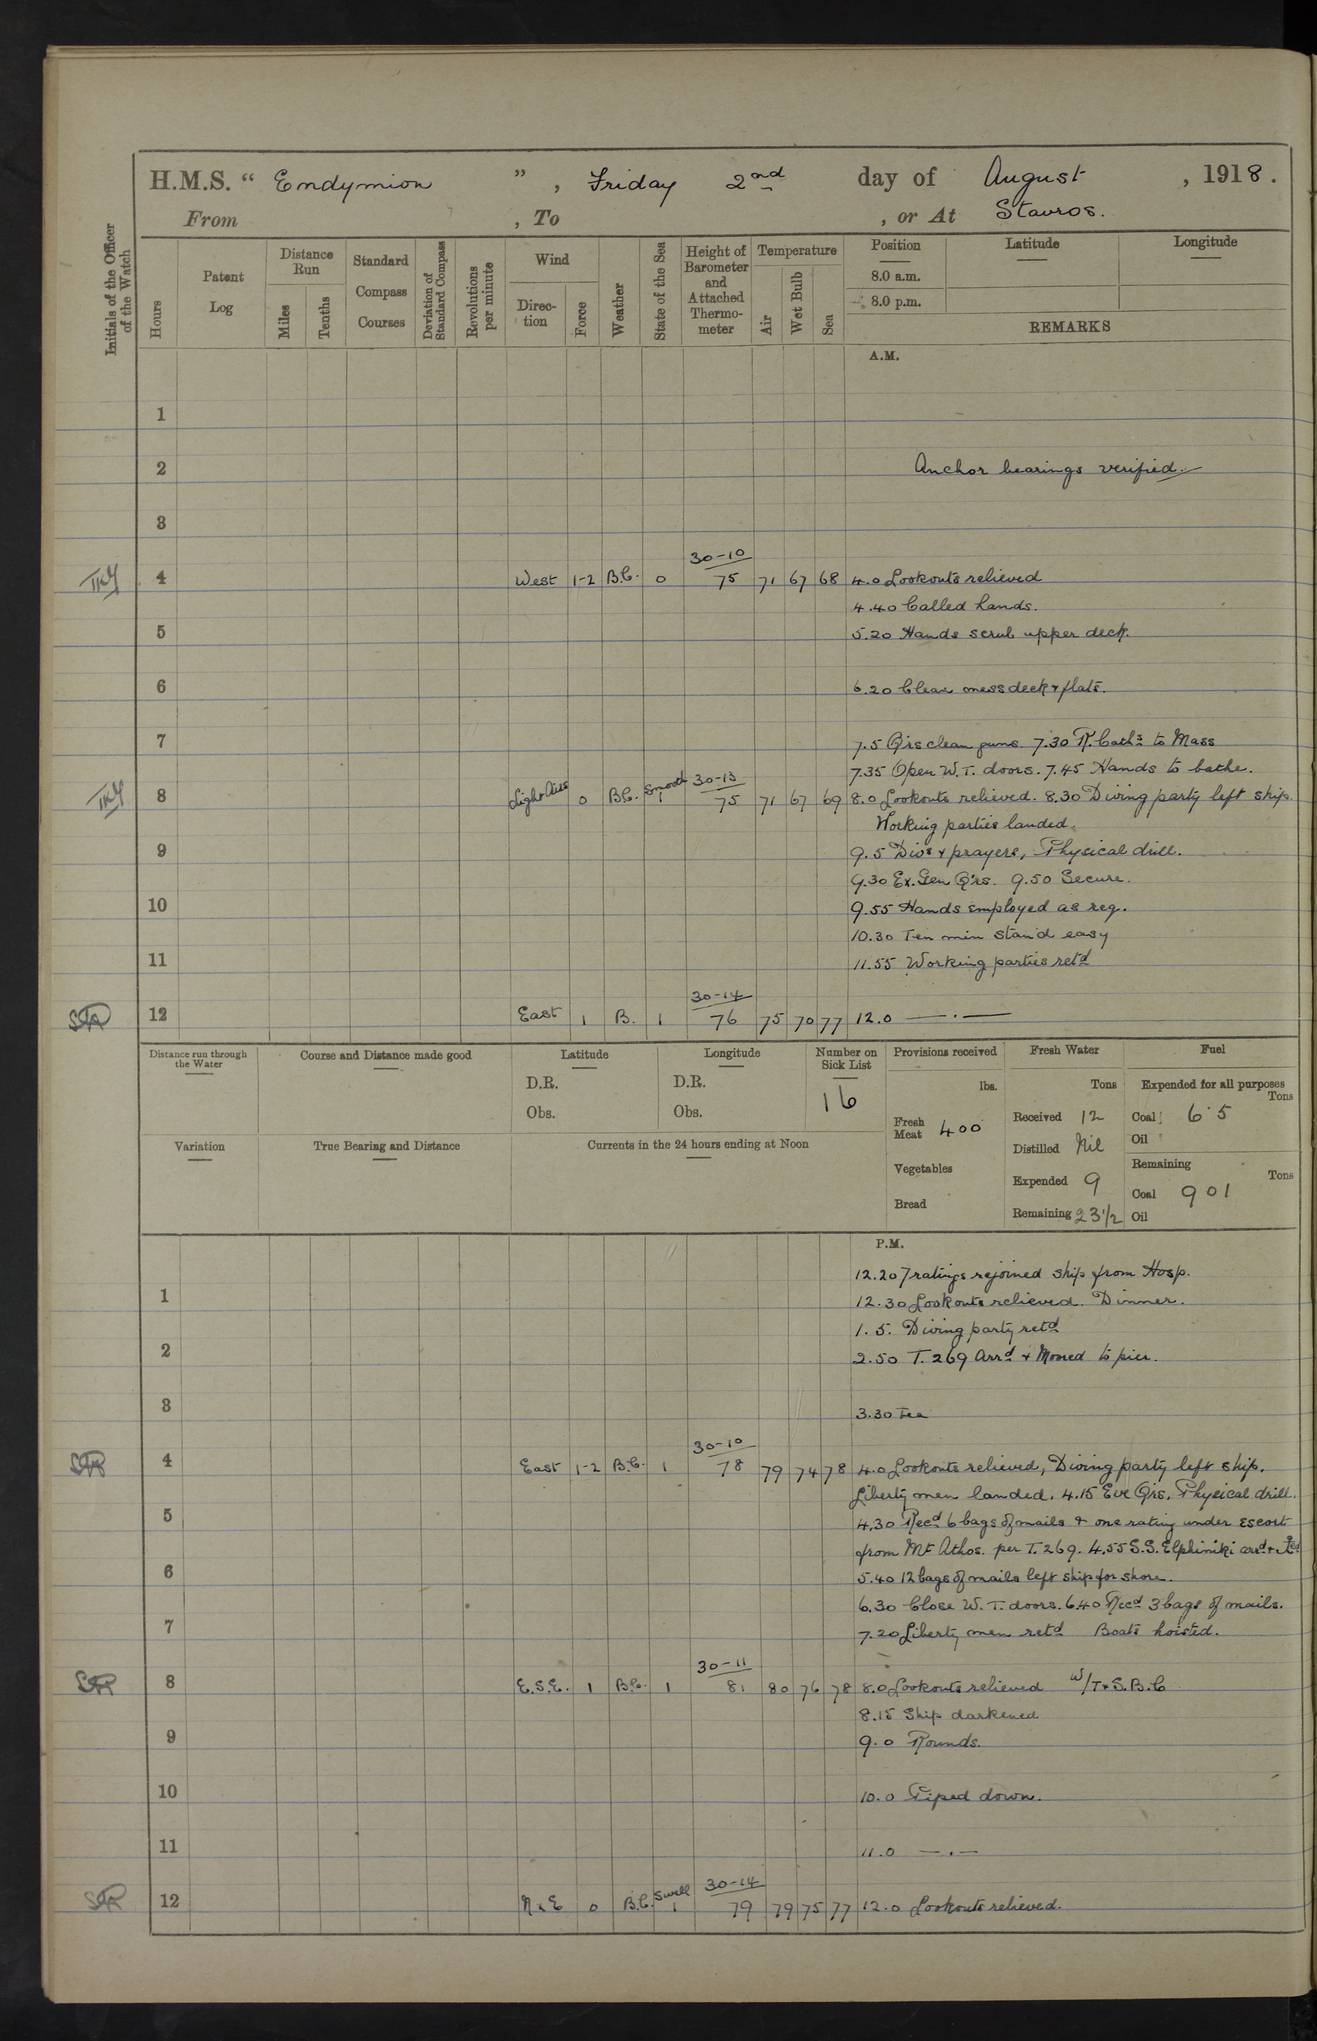 H.M.S. “ Endymion ” , Friday 2nd day of August , 1918 .
From , To , or At Stavros.
Initials of the Officer of the Watch
Hours
Patent Log
Distance Run
Miles
Tenths
Standard Compass Courses
Deviation of Standard Compass
Revolutions per minute
Wind
Direction
Force
Weather
State of the Sea
Height of Barometer and Attached Thermometer
Temperature
Air
Wet Bulb
Sea
Position
8.0 a.m.
8.0 p.m.
Latitude
Longitude
REMARKS
A.M.
1
2 Anchor bearings verified.
3
30-10
4 West 1-2 B.C. 0 75 71 67 68 4.0 Lookouts relieved
4.40 Called hands.
5 5.20 Hands scrub upper deck.
6 6.20 Clean mess deck & flats.
7 7.5 Qrs clean guns. 7.30 R. Caths to Mass
7.35 Open W.T. doors. 7.45 Hands to bathe.
30-13
8 Light Airs 0 B.C. Smooth 1 75 71 67 69 8.0 Lookouts relieved. 8.30 Diving party left ship.
Working parties landed.
9 9.5 Divs & prayers, Physical drill.
9.30 Ex. Gen Qrs. 9.50 Secure.
10 9.55 Hands employed as req.
10.30 Ten min stand easy
11 11.55 Working parties retd
30-14
12 East 1 B. 1 76 75 70 77 12.0 — . —
Distance run through the Water
Course and Distance made good
Latitude
D.R.
Obs.
Longitude
D.R.
Obs.
Number on Sick List
16
Provisions received
lbs.
Fresh Meat 400
Vegetables
Bread
Fresh Water
Tons
Received 12
Distilled Nil
Expended 9
Remaining 23 1/2
Fuel
Expended for all purposes
Tons
Coal 6.5
Oil
Remaining
Tons
Coal 901
Oil
Variation
True Bearing and Distance
Currents in the 24 hours ending at Noon
P.M.
12.20 7 ratings rejoined ship from Hosp.
1 12.30 Lookouts relieved. Dinner.
1.5. Diving party retd
2 2.50 T. 269 Arrd & Moored to pier.
3 3.30 Tea
30-10
4 East 1-2 B.C. 1 78 79 74 78 4.0 Lookouts relieved, Diving party left ship.
Liberty men landed. 4.15 Eve Qrs. Physical drill.
5 4.30 Recd 6 bags of mails & one rating under escort
from Mt Athos. per T. 269. 4.55 S.S. Elphiniki arrd &
6 5.40 12 bags of mails left ship for shore.
6.30 Close W.T. doors. 6.40 Recd 3 bags of mails.
7 7.20 Liberty men retd Boats hoisted.
30-11
8 E.S.E. 1 B.C. 1 81 80 76 78 8.0 Lookouts relieved W/T & S.B.C
8.15 Ship darkened
9 9.0 Rounds.
10 10.0 Piped down.
11 11.0 — . —
30-14
12 N x E 0 B.C. Swell 1 79 79 75 77 12.0 Lookouts relieved.